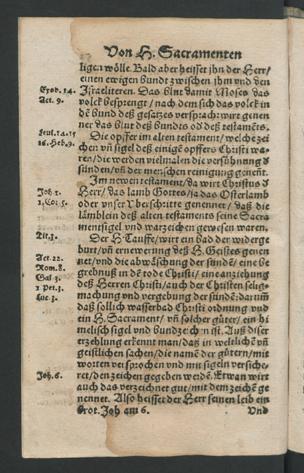 Von H. Sacramenten
ligen wölle. Bald aber heisset jhn der Herr/
einen ewigen bundt zwischen jhm vnd den
Exod. 24. Jsraeliteren. Das blut damit Moses das
Act. 9. volck besprengt / nach dem sich das volck in
dē bund deß gesatzes versprach: wirt genen
net das blut deß bundts oð deß testamēts.
Leui. 14. 15 Die opffer im alten testament / welche zei
16. Heb. 9. chen vñ sigel deß einigē opffers Christi wa-
ren / die werden vielmalen die versühnung ð
sünden / vñ der menschen reinigung genent.
Jm newen testament / da wirt Christus ð
Joh. 1. Herr / das lamb Gottes / ja das Osterlamb
1. Cor. 5. oder vnser beschnitte genennet / daß die
lämblein deß alten testaments seine Sacra
mentsigel vnd warzeichen gewesen waren.
Tit. 3. Der H. Tauffe / wirt ein bad der widerge
burt / vñ ernewerung deß H. Geistes genen
Act. 22. net / vnd die abwäschung der sündē / eine be
Rom. 8. grebnuß in dē tode Christi / eine anziehung
Gal. 3. deß Herren Christi / auch der Christen selig-
1 Pet. 3. machung vnd vergebung der sündē: darum̄
Luc. 3. daß sollich wasserbad Christi ordnung vnd
ein H. Sacrament / vñ solcher güter / ein hi
melisch sigel vnd bundzeichen ist. Auß diser
erzehlung erkennt man / daß in weltlichē vñ
geistlichen sachen / die namē der gütern / mit
worten versprochen vnd mit sigeln versiche-
Joh. 6. ret / den zeichen gegeben werdē. Etwan wirt
auch das verzeichnet gut / mit dem zeichē ge
nennet. Also heisset der Herr seinen leib ein
brot. Joh am 6. Vnd